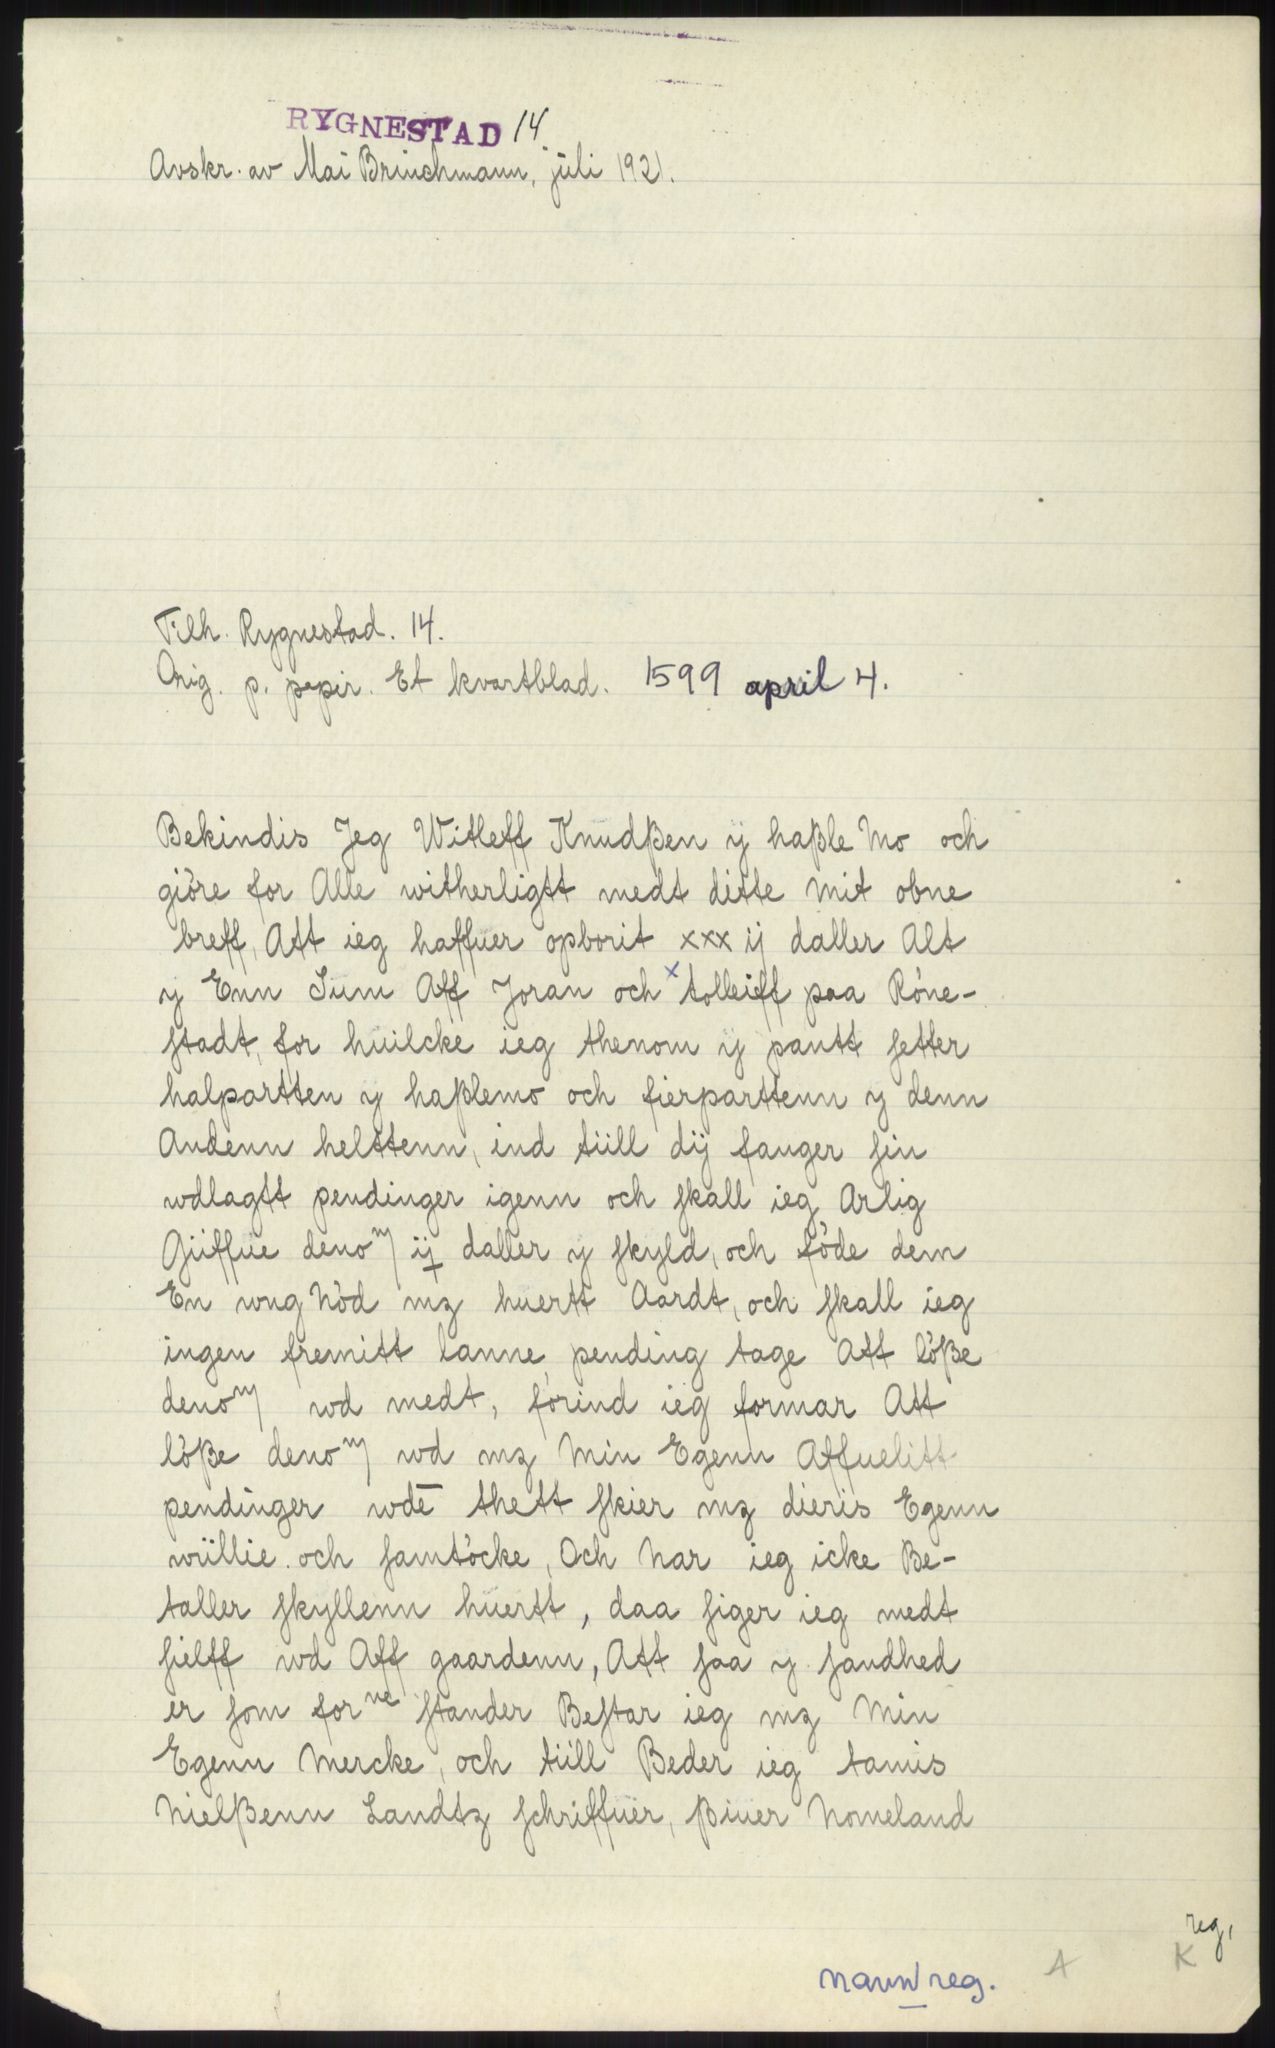 RYGNESTAD 14.
Avskr. av Mai Brinchmann, juli 1921.
Tilh. Rygnestad. 14.
Orig. p. papir. Et kvartblad. 1599 april 4.
Bekindis Jeg Witleff Knudßen ÿ haßle Mo och
giöre for Alle witherligtt medt dette Mit obne
breff, Att ieg haffuer opborit xxx ij daller Alt
y Enn Sum Aff Joran och x tolleiff paa Röne-
stadt, for huilcke ieg thenom ÿ pantt setter
halpartten y haßlemo och fierparttenn y denn
Andenn helttenn, ind tiill dÿ fanger sin
wdlagtt pendinger igenn och skall ieg Arlig
Giiffue denom ij daller y skyld, och föde dem
En wng Nöd mz huertt Aardt, och skall ieg
ingen fremitt lanne pending tage Att löße
denom wd medt, förind ieg formar Att
löße denom wd mz Min Egenn Affuelitt
pendinger wdē thett skier mz dieris Egenn
wiillie och samtöcke, Och Nar ieg icke Be-
taller skyllenn huertt, daa siger ieg medt
sielff wd Aff gaardenn, Att saa y sandhed
er som forne stander Bestar ieg mz Min
Egenn Mercke, och tiill Beder ieg tamis
Nielßenn Landtz schriffuer, ßiuer Nomeland
reg,
navnreg. A K